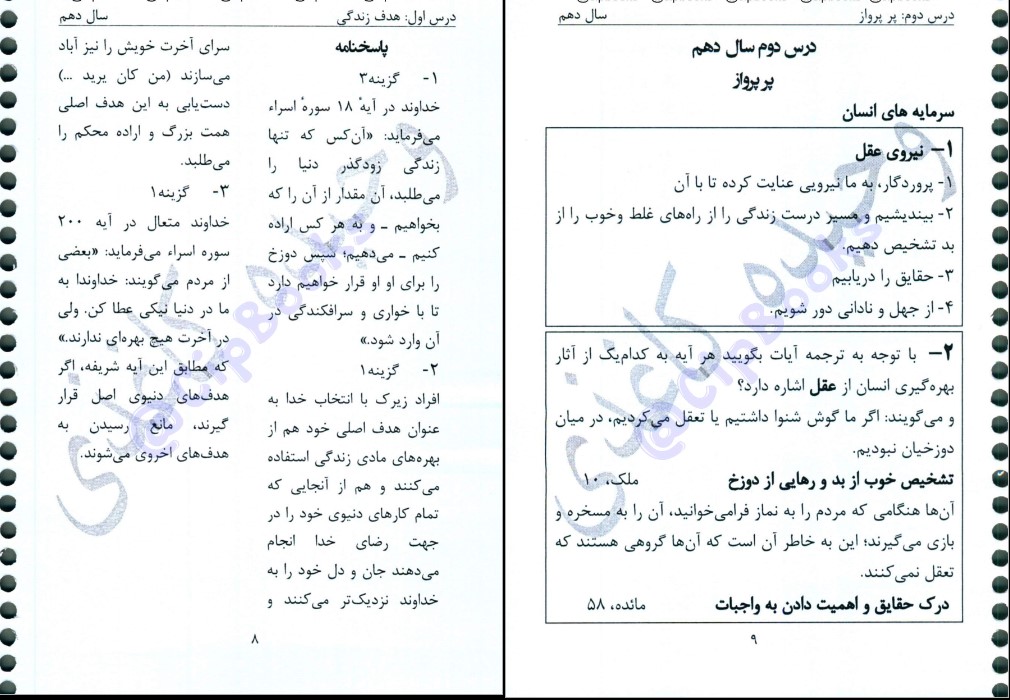 درس دوم: پر پرواز
سال دهم
درس دوم سال دهم
پر پرواز
سرمایه های انسان
۱- نیروی عقل
۱- پروردگار، به ما نیرویی عنایت کرده تا با آن
۲- بیندیشیم و مسیر درست زندگی را از راه‌های غلط وخوب را از
بد تشخیص دهیم.
۳- حقایق را دریابیم
۴- از جهل و نادانی دور شویم.
۲- با توجه به ترجمه آیات بگویید هر آیه به کدام‌یک از آثار
بهره‌گیری انسان از عقل اشاره دارد؟
و می‌گویند: اگر ما گوش شنوا داشتیم یا تعقل می‌کردیم، در میان
دوزخیان نبودیم.
تشخیص خوب از بد و رهایی از دوزخ ملک، ۱۰
آن‌ها هنگامی که مردم را به نماز فرامی‌خوانید، آن را به مسخره و
بازی می‌گیرند؛ این به خاطر آن است که آن‌ها گروهی هستند که
تعقل نمی‌کنند.
درک حقایق و اهمیت دادن به واجبات مائده، ۵۸
۹
درس اول: هدف زندگی
سال دهم
پاسخنامه
۱- گزینه۳
خداوند در آیهٔ ۱۸ سورهٔ اسراء
می‌فرماید: «آن‌کس که تنها
زندگی زودگذر دنیا را
می‌طلبد، آن مقدار از آن را که
بخواهیم ـ و به هر کس اراده
کنیم ـ می‌دهیم؛ سپس دوزخ
را برای او او قرار خواهیم دارد
تا با خواری و سرافکندگی در
آن وارد شود.»
۲- گزینه۱
افراد زیرک با انتخاب خدا به
عنوان هدف اصلی خود هم از
بهره‌های مادی زندگی استفاده
می‌کنند و هم از آنجایی که
تمام کارهای دنیوی خود را در
جهت رضای خدا انجام
می‌دهند جان و دل خود را به
خداوند نزدیک‌تر می‌کنند و
سرای آخرت خویش را نیز آباد
می‌سازند (من کان یرید ...)
دست‌یابی به این هدف اصلی
همت بزرگ و اراده محکم را
می‌طلبد.
۳- گزینه۱
خداوند متعال در آیه ۲۰۰
سوره اسراء می‌فرماید: «بعضی
از مردم می‌گویند: خداوندا به
ما در دنیا نیکی عطا کن. ولی
در آخرت هیچ بهره‌ای ندارند.»
که مطابق این آیه شریفه، اگر
هدف‌های دنیوی اصل قرار
گیرند، مانع رسیدن به
هدف‌های اخروی می‌شوند.
۸
وحیده کاغذی
@ClipBooks
وحیده کاغذی
@ClipBooks